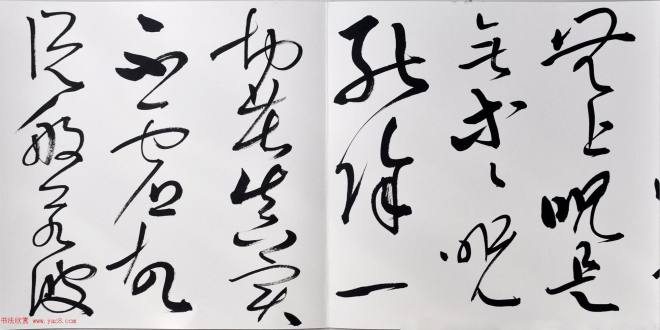 無上呪是
无等々呪
能除一
切苦真實
不虛故
說般若波
书法欣赏 www.yac8.com